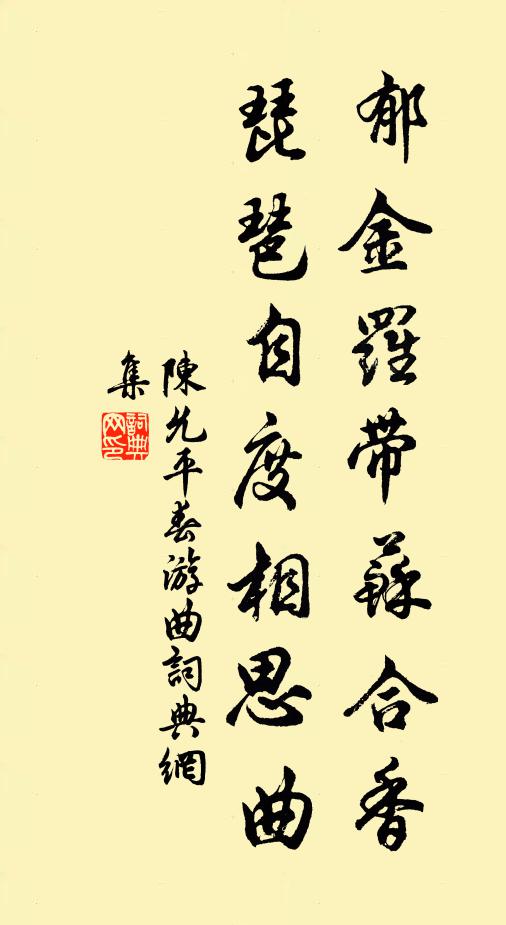 郁金羅带蘇合香
琵琶自度相思曲
陳允平春游曲詞典網
集
詞典网印